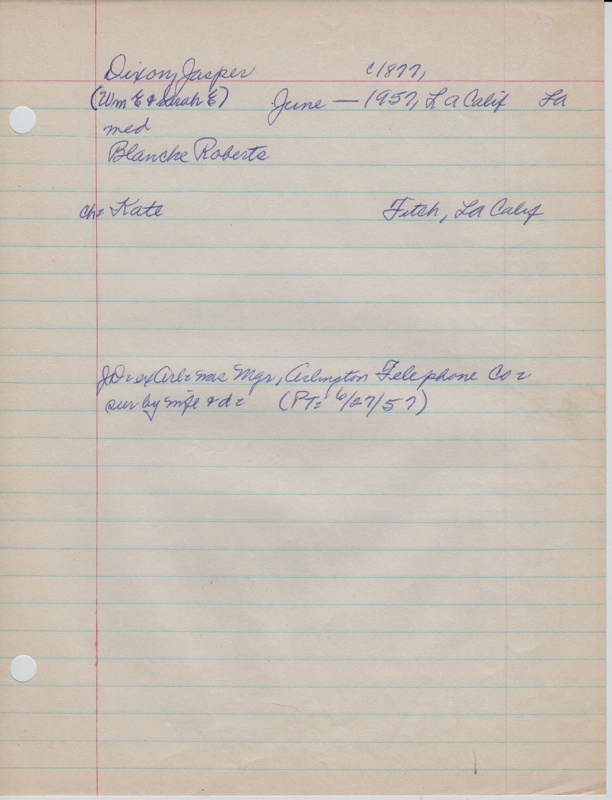 Dixon, Jasper c1877,
(Wm E & Sarah E) June — 1957, LA Calif LA
med
Blanche Roberts
ch= Kate Fitch, LA Calif
JD= ex Arl= was Mgr, Arlington Telephone Co=
sur by wife & d= (PT= 6/27/57)